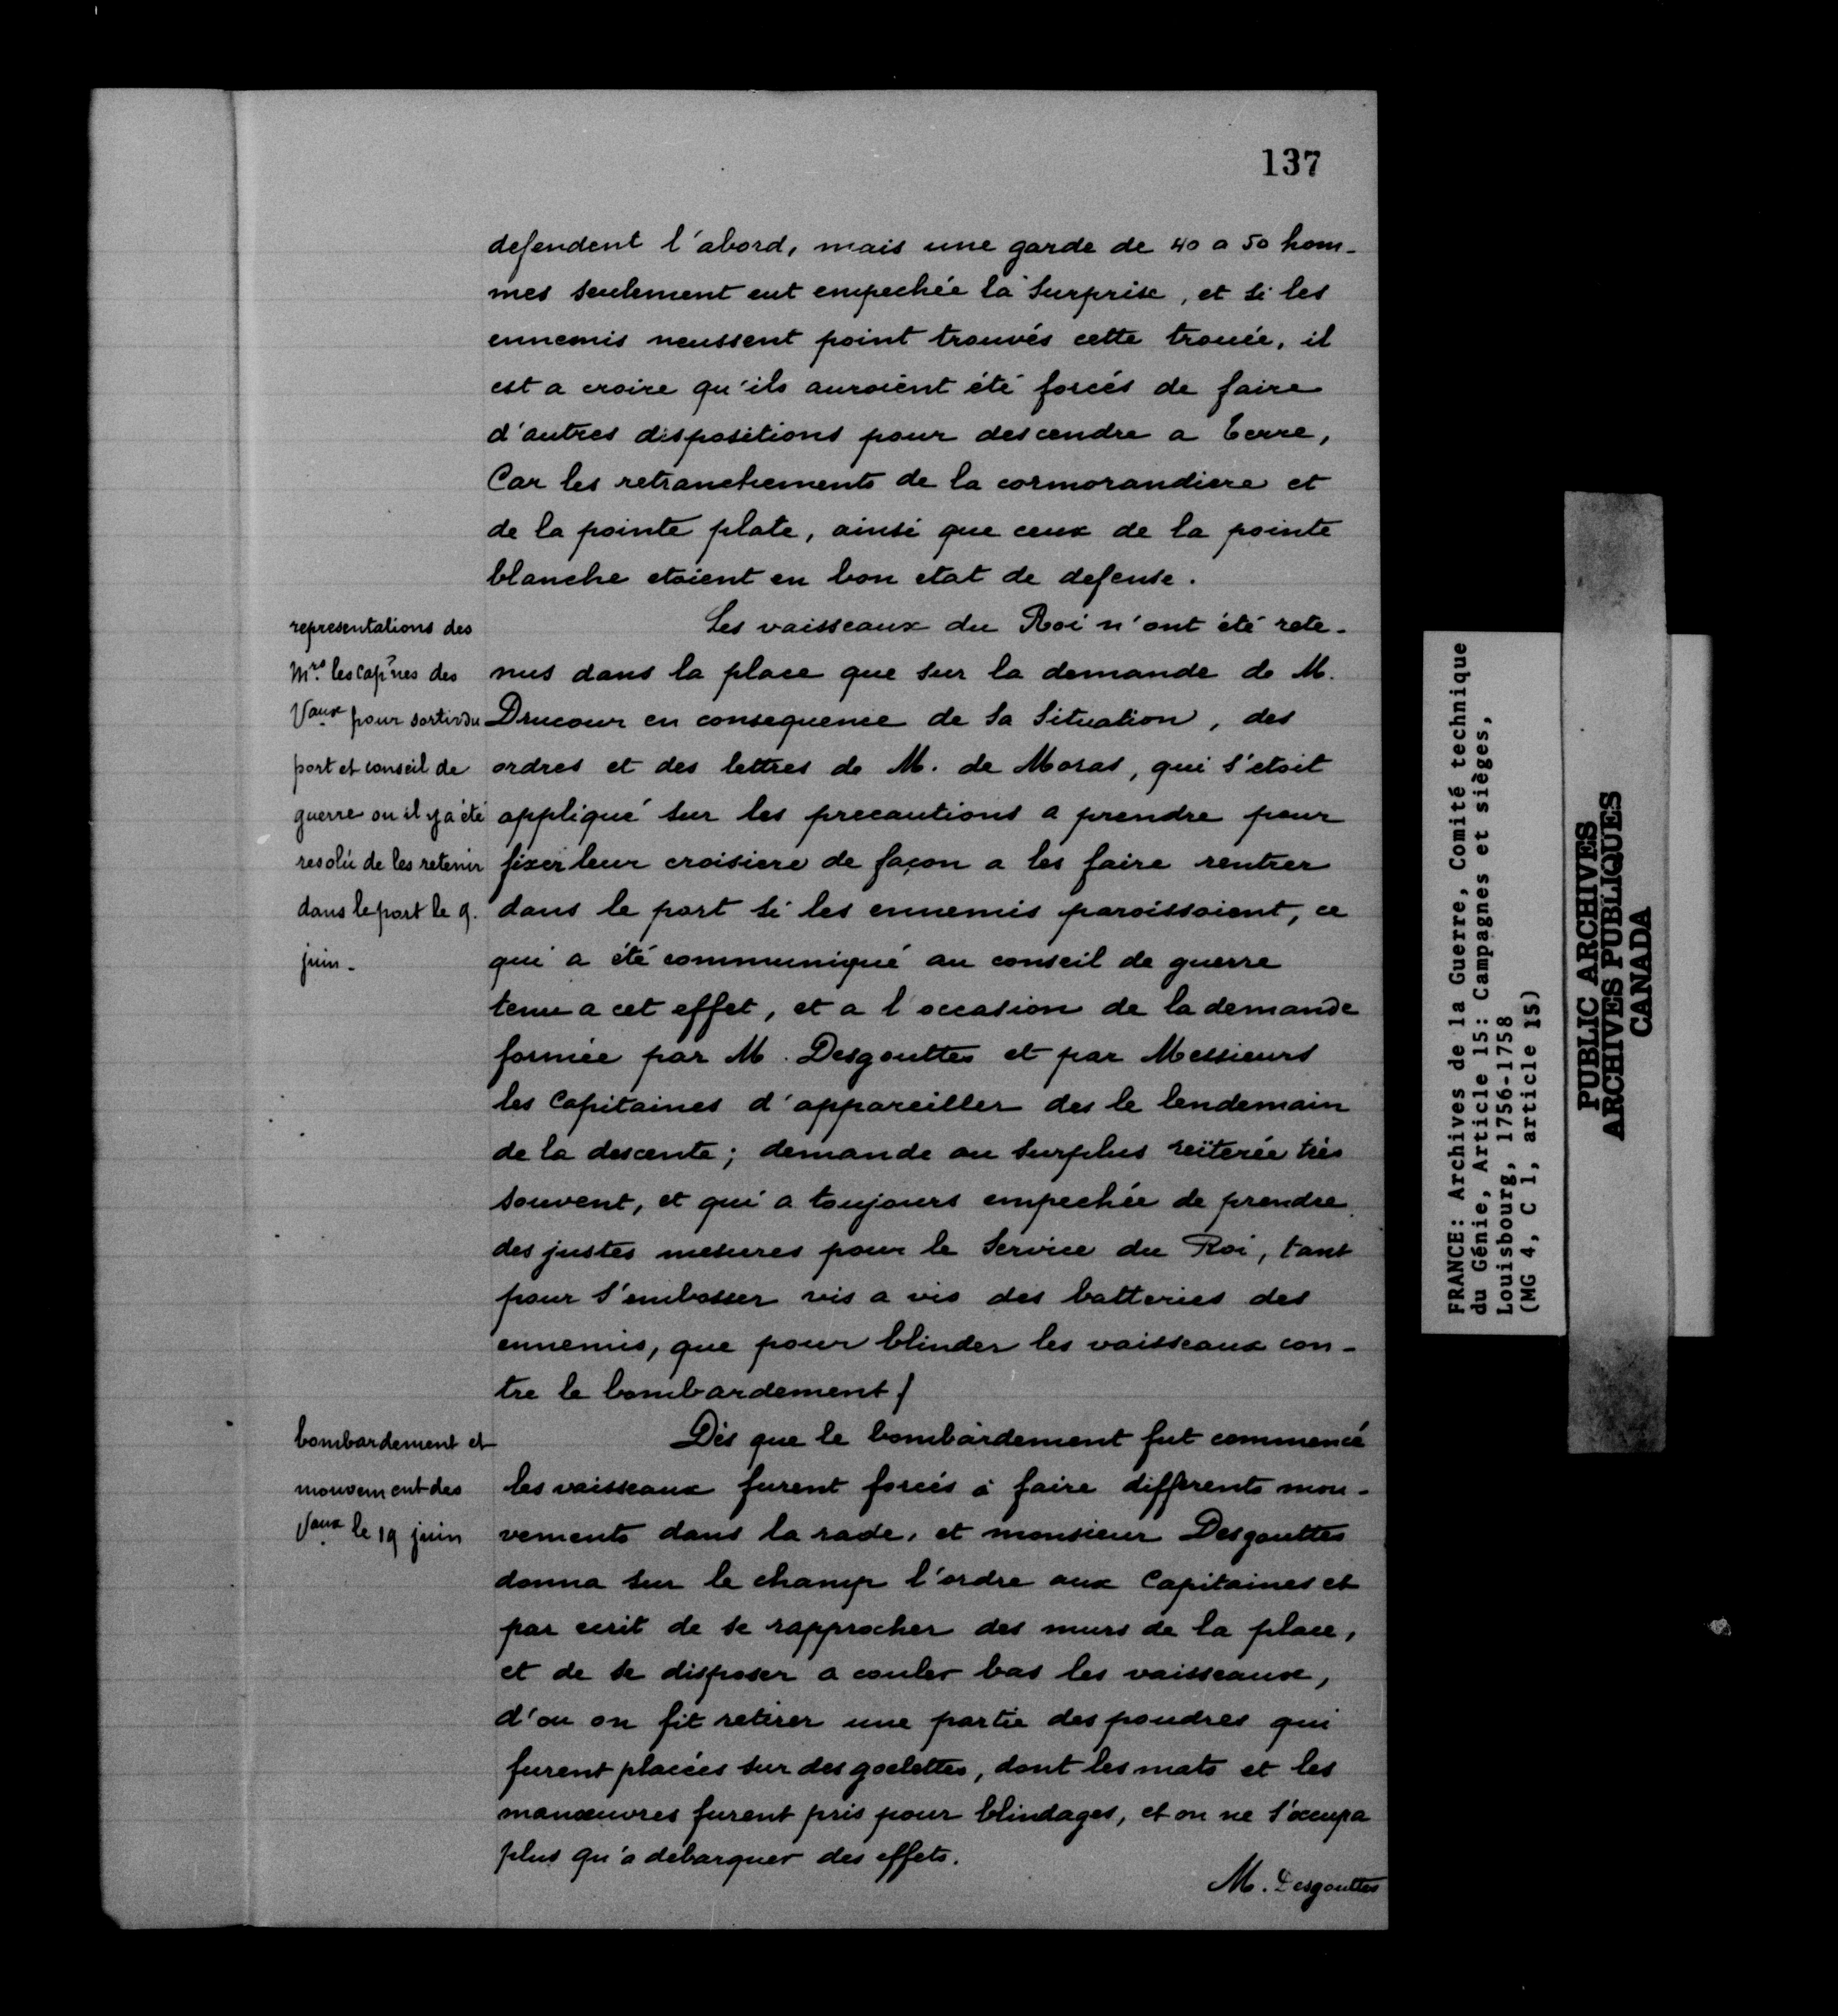 137
defendent l'abord, mais une garde de 40 a 50 hom-
mes seulement eut empechée la surprise, et si les
ennemis neussent point trouvés cette trouée, il
est a croire qu'ils auroient été forcés de faire
d'autres dispositions pour descendre a terre,
Car les retranchements de la cormorandiere et
de la pointe plate, ainsi que ceux de la pointe
blanche etoient en bon etat de defense.
representations des
Mrs. les capnes des
Vaux pour sortir du
port et conseil de
guerre ou il y a été
resolu de les retenir
dans le port le 9.
juin.
Les vaisseaux du Roi n'ont été rete-
nus dans la place que sur la demande de M.
Drucour en consequence de sa situation, des
ordres et des lettres de M. de Moras, qui s'etoit
appliqué sur les precautions a prendre pour
fixer leur croisiere de façon a les faire rentrer
dans le port si les ennemis paroissoient, ce
qui a été communiqué au conseil de guerre
tenu a cet effet, et a l'occasion de la demande
formée par M. Desgouttes et par Messieurs
les Capitaines d'appareiller des le lendemain
de la descente; demande au surplus reïterée très
souvent, et qui a toujours empechée de prendre
des justes mesures pour le service du Roi, tant
pour s'embosser vis a vis des batteries des
ennemis, que pour blinder les vaisseaux con-
tre le bombardement/
bombardement et
mouvement des
Vaux le 19 juin
Dès que le bombardement fut commencé
les vaisseaux furent forcés à faire differents mou-
vements dans la rade, et monsieur Desgouttes
donna sur le champ l'ordre aux Capitaines et
par ecrit de se rapprocher des murs de la place,
et de se disposer a couler bas les vaisseaux,
d'ou on fit retirer une partie des poudres qui
furent placées sur des goelettes, dont les mats et les
manœuvres furent pris pour blindages, et on ne s'occupa
plus qu'a debarquer des effets.
M. Desgouttes
FRANCE: Archives de la Guerre, Comité technique
du Génie, Article 15: Campagnes et sièges,
Louisbourg, 1756-1758
(MG 4, C 1, article 15)
PUBLIC ARCHIVES
ARCHIVES PUBLIQUES
CANADA